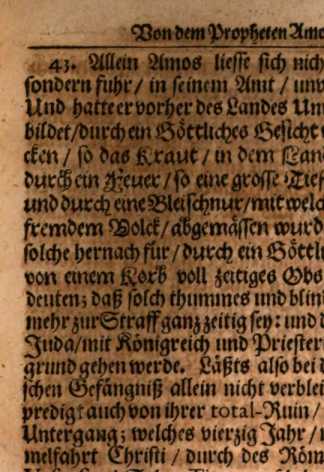 Von dem Propheten Amo
43. Allein Amos liesse sich nich
sondern fuhr / in seinem Amt / unv
Und hatte er vorher des Landes Unt
bildet/durch ein Göttliches Gesicht v
cken / so das Kraut / in dem Lan
durch ein Feuer / so eine grosse Tief
und durch eine Bleischnur/mit welc
fremdem Volck/abgemässen wurd
solche hernach für / durch ein Göttl
von einem Korb voll zeitiges Obs
deuten; daß solch thummes und blin
mehr zur Straff ganz zeitig sey: und d
Juda/mit Königreich und Priester
grund gehen werde. Läßts also bei d
schen Gefängniß allein nicht verblei
predigt auch von ihrer total-Ruin /
Untergang; welches vierzig Jahr / n
melfahrt Christi / durch des Röm